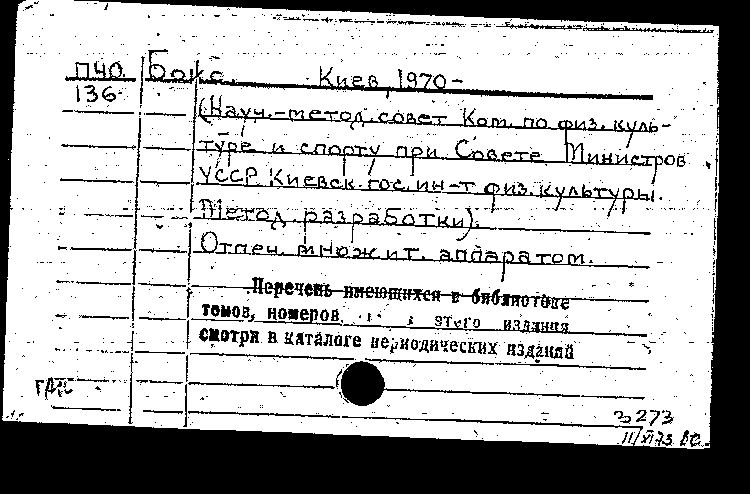 ПЧО Бокс. Киев, 1970-
136
(Науч.-метод. совет Ком. по физ. куль-
туре и спорту при Совете Министров
УССР. Киевск. гос. ин-т физ. культуры.
Метод. разработки).
Отпеч. множит. аппаратом.
Перечень имеющихся в библиотеке
томов, номеров этого издания
смотри в каталоге периодических изданий
З 273
11/XI 73